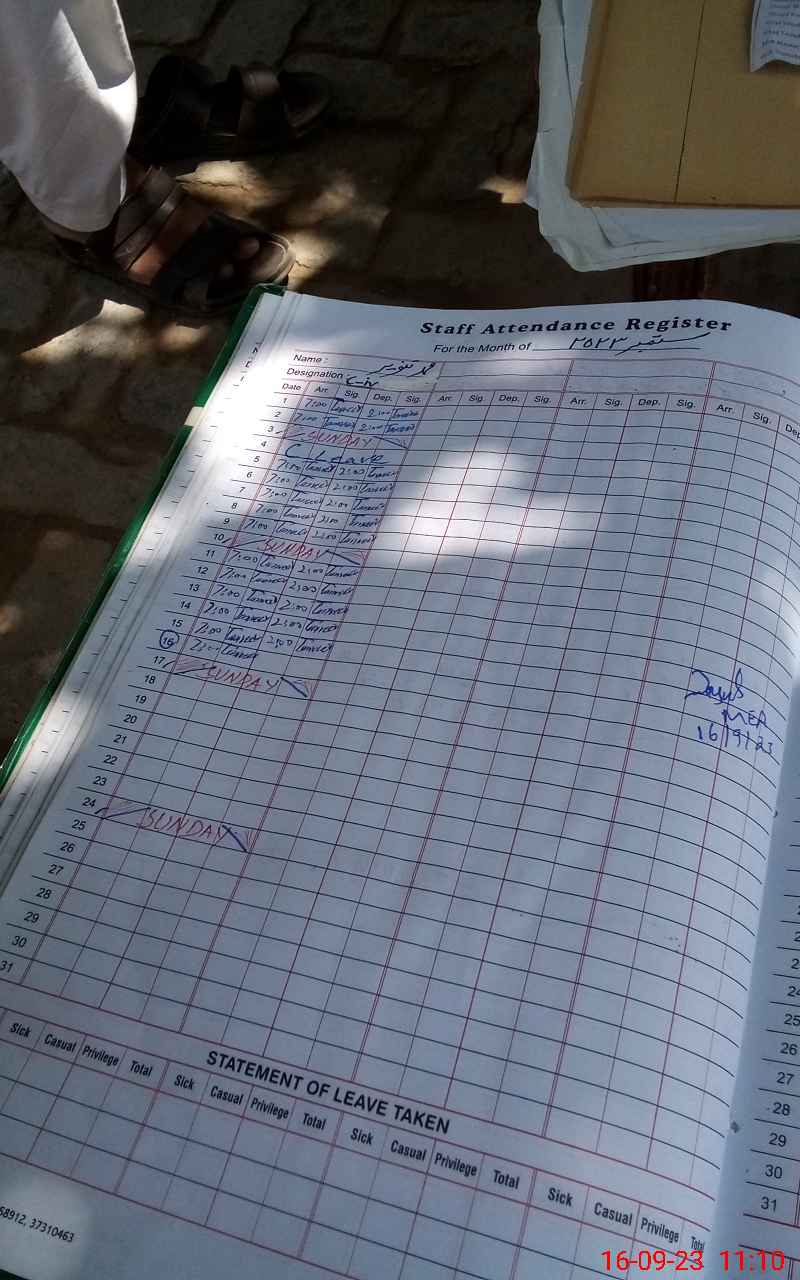 Staff Attendance Register
For the Month of ستمبر ۲۰۲۳
Name : محمد تنویر
Designation C-iv
Date Arr. Sig. Dep. Sig. Arr. Sig. Dep. Sig. Arr. Sig. Dep. Sig. Arr. Sig. Dep
1 7:00 2:00
2 7:00 2:00
3 SUNDAY
4 C-Leave
5 7:00 2:00
6 7:00 2:00
7 7:00 2:00
8 7:00 2:00
9 7:00 2:00
10 SUNDAY
11 7:00 2:00
12 7:00 2:00
13 7:00 2:00
14 7:00 2:00
15 7:00 2:00
16 7:00
17 SUNDAY
18
19
20
21
22
23
24 SUNDAY
25
26
27
28
29
30
31
MEA
16/9/23
STATEMENT OF LEAVE TAKEN
Sick Casual Privilege Total Sick Casual Privilege Total Sick Casual Privilege Total Sick Casual Privilege Total
58912, 37310463
24
25
26
27
28
29
30
31
16-09-23 11:10